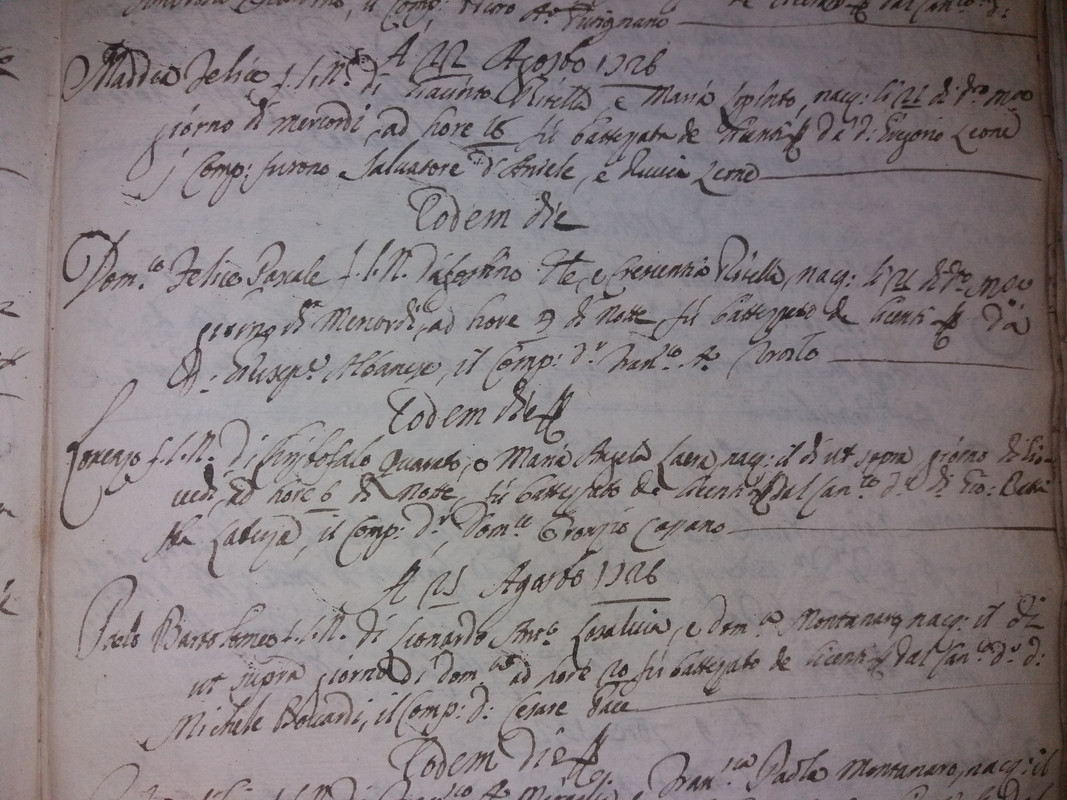 il Comp: Furignano
A 22 Agosto 1726
Maddª Felice f.l.N. di Giacinto Ritella e Maria Lopinto, nacq: li 21 di dº mse
giorno di Mercordi ad hore 16 fù battezzata de licentia da d: Grigorio Leone
j Comp: furono Salvatore d'Aniele, e Leone
Eodem die
Dom.co Felice Pascale f.l.N. d'Agostino e Crescentia Ritella, nacq: li 21 di dº mse
giorno di Mercordi, ad hore 9 di Notte fù battezzato de licentia Da
D: Giusep.e Albanese, il Comp: d.r Fran.co Ant.
Eodem die
Lorenzo f.l.N. Di Christofalo Quarato, e Maria Angela Laera nacq: il di ut sopra giorno di Gio-
vedi, ad hore 6 di Notte, fù battezzato de licentia dal Can.co D. Gio: Batti-
sta Laterza, il Comp: d.r Dom.co Oronzio Cassano
A 25 Agosto 1726
Paolo Bartolomeo f.l.N. di Leonardo Ant.º e Dom.ca Montanaro nacq: il di
ut supra giorno di dom.ca ad hore 20 fù battezzato de licentia dal Can.co D. d:
Michele il Comp: d: Cesare Pace
Eodem die
Fran.ca Paola Montanaro, nacq: il